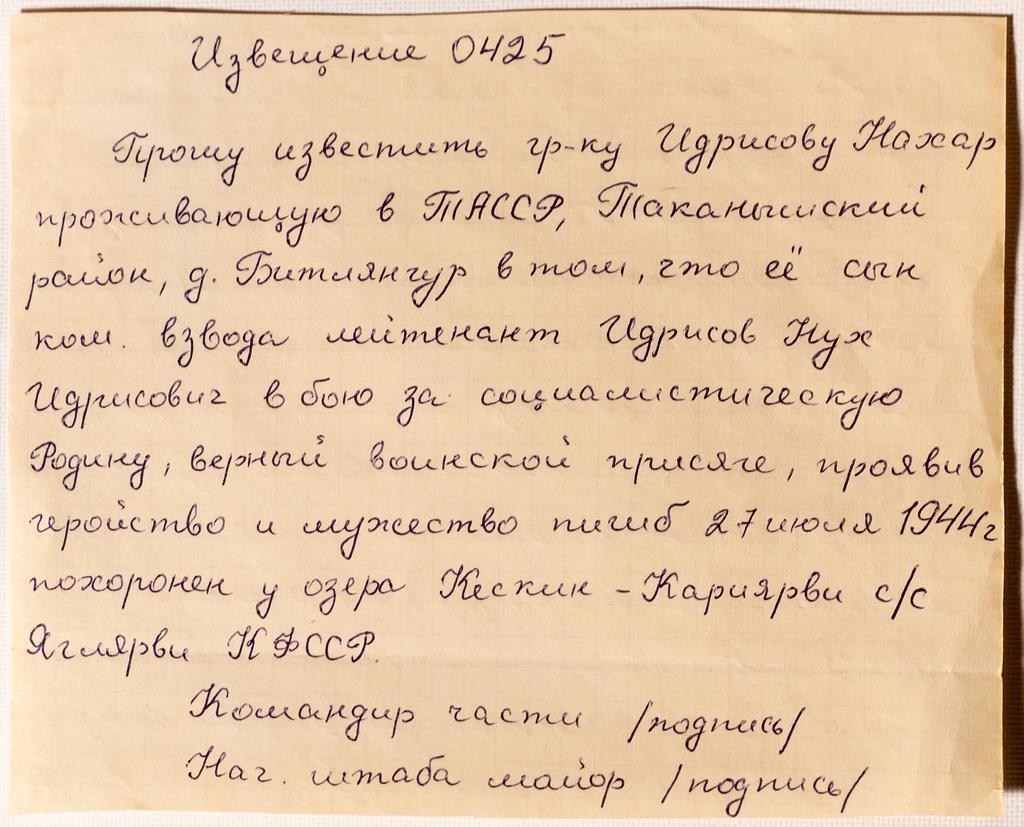 Извещение 0425
Прошу известить гр-ку Идрисову Нахар
проживающую в ТАССР, Таканышский
район, д. Битлянгур в том, что её сын
ком. взвода лейтенант Идрисов Нух
Идрисович в бою за социалистическую
Родину, верный воинской присяге, проявив
геройство и мужество пигиб 27 июля 1944г
похоронен у озера Кескин-Кариярви с/с
Яглярви КФССР.
Командир части /подпись/
Нач. штаба майор /подпись/